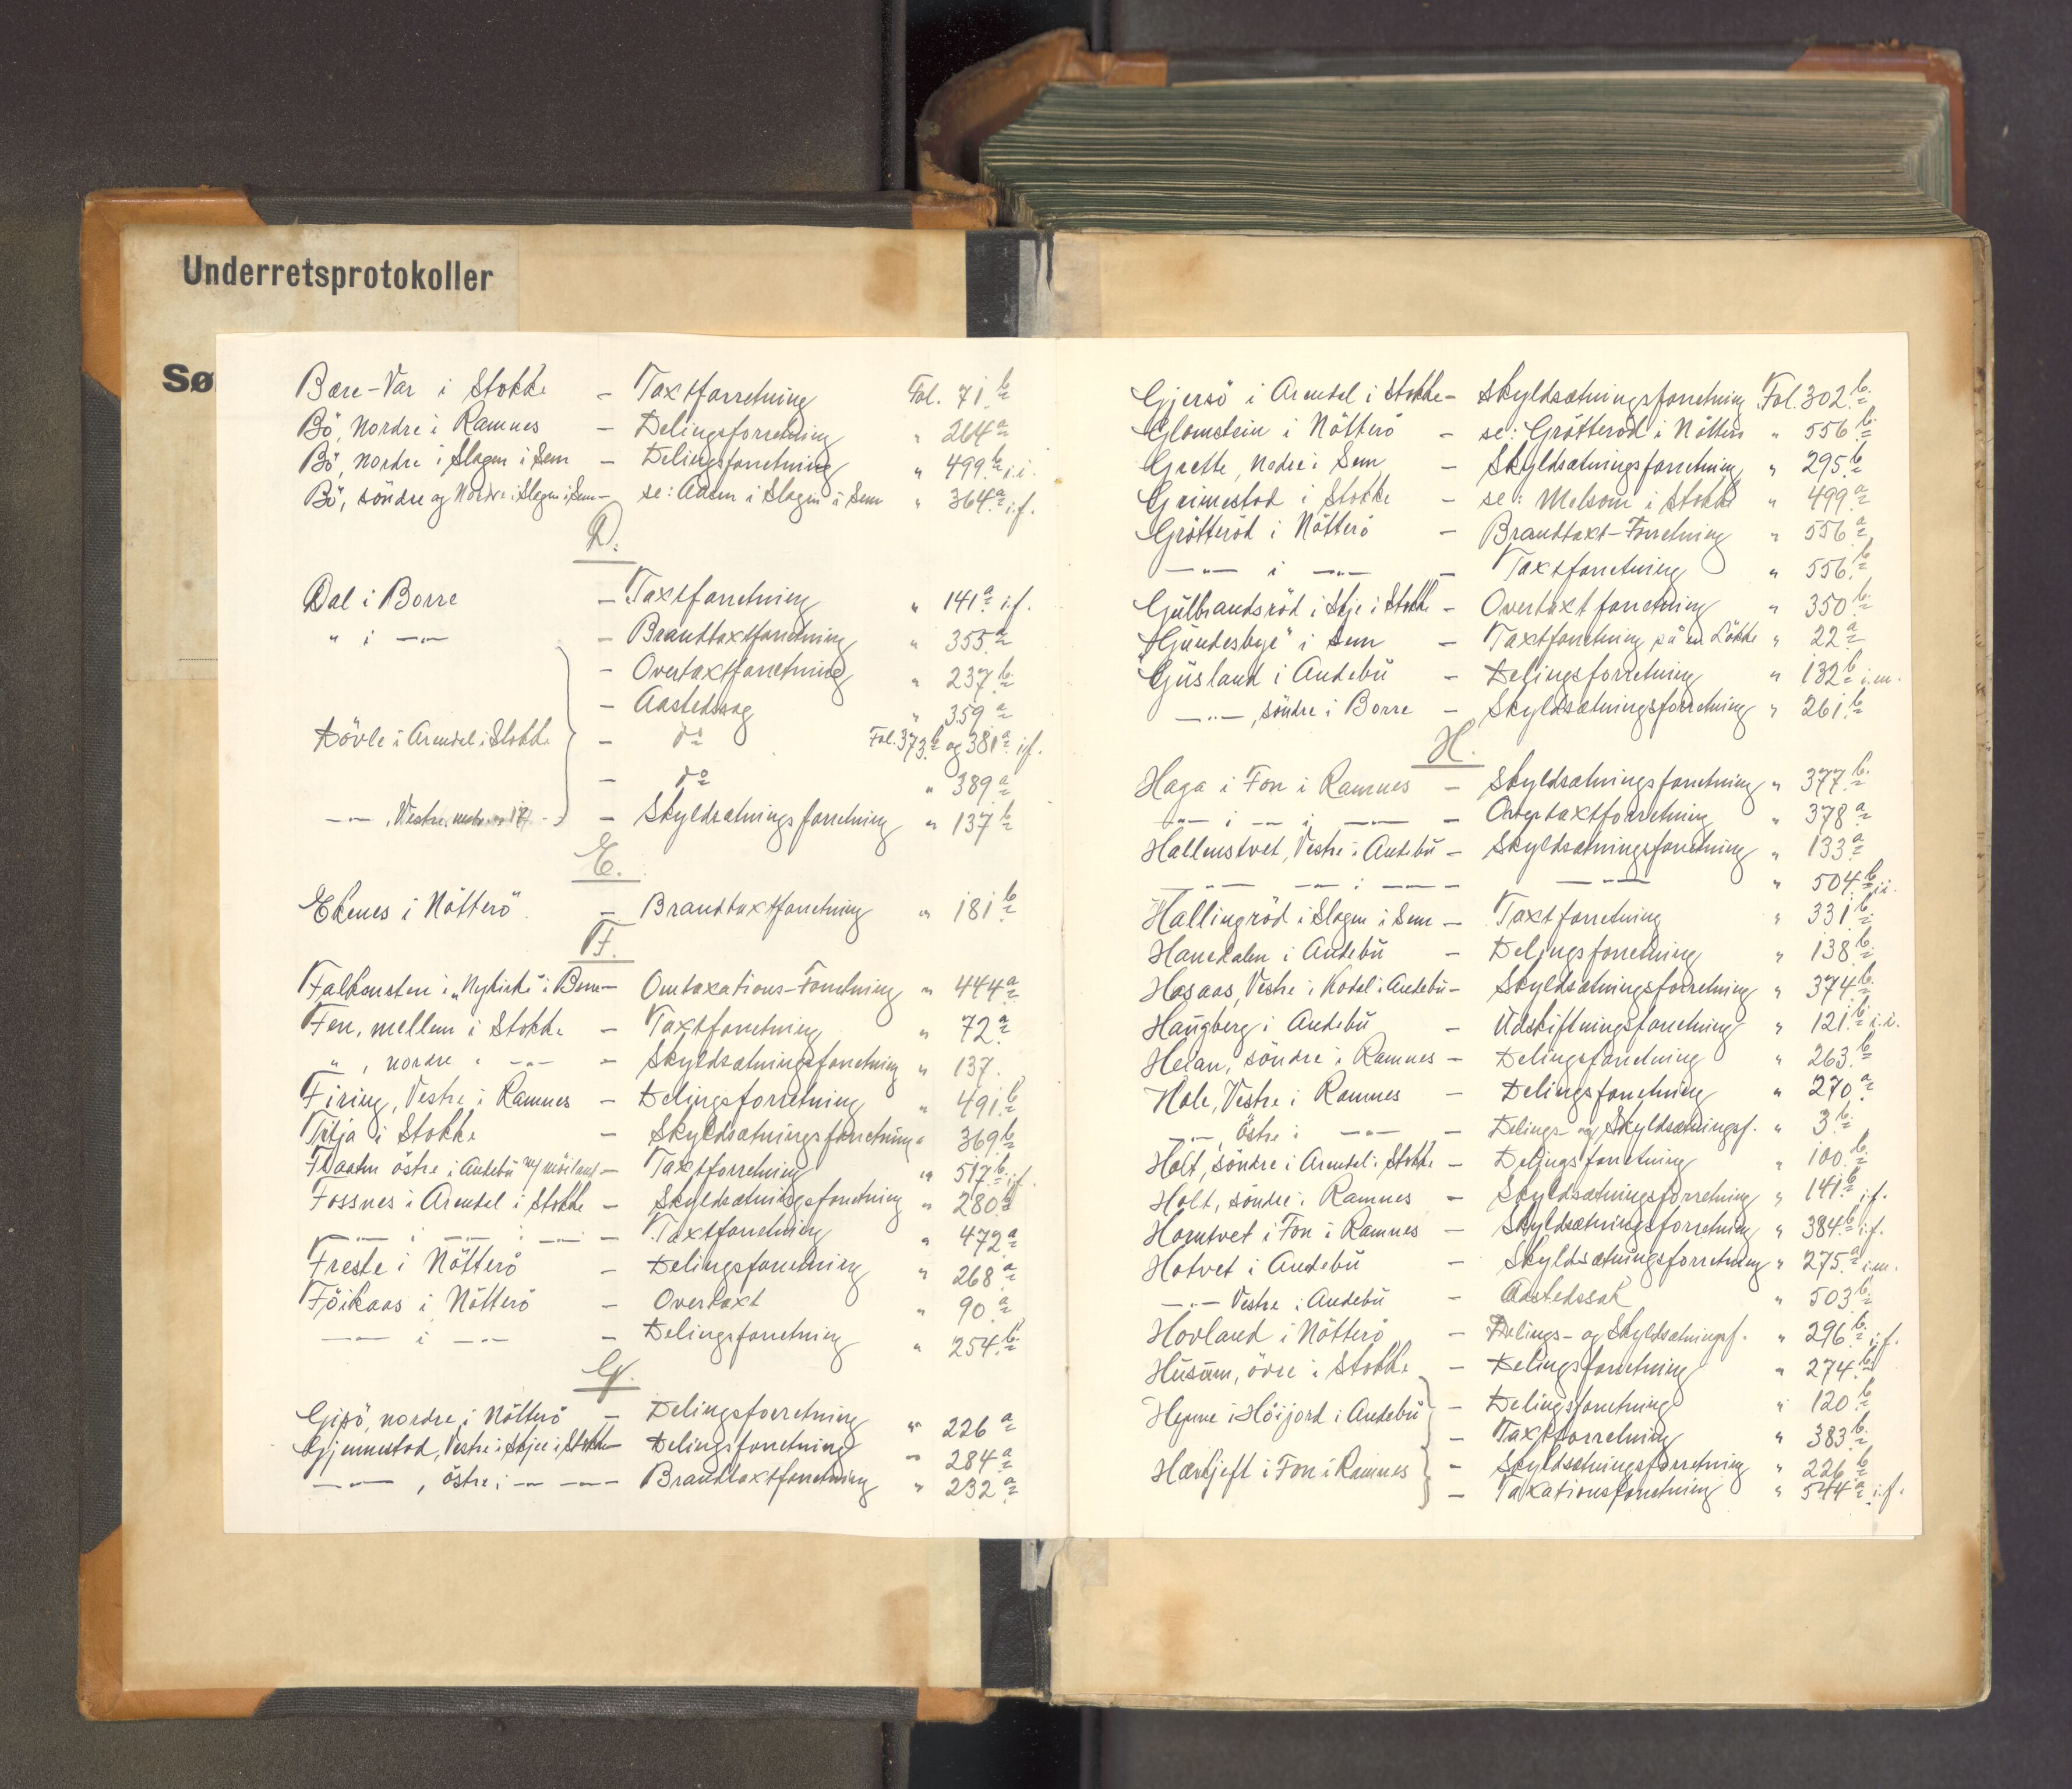 Underretsprotokoller
Sø
Bære-Var i Stokke - Taxtforretning Fol. 71.b
Bö, Nordre i Ramnes - Delingsforretning " 264a
Bö, nordre i Slagen i Sem - Delingsforretning " 499.b i.i.
Bö, söndre og Nordre i Slagen i Sem - se: Aasen i Slagen i Sem " 364.a i.f.
D.
Dal i Borre - Taxtforretning " 141a i.f.
" i -"- - Brandtaxtforretning " 355.a
- Overtaxtforretning " 237.b
- Aastedssag " 359 a
Dövle i Arendal i Stokke - do Fol. 373.b og 381a i.f.
- do " 389a
-"-, Vestre - Skyldsætningsforretning " 137 b
E.
Ekenes i Nötterö - Brandtaxtforretning " 181 b
F.
Falkensten i "Nykirke" i Borre - Omtaxations-Forretning " 444a
Fen, mellem i Stokke - Taxtforretning " 72.a
" , nordre " -"- - Skyldsætningsforretning " 137.
Firing, Vestre i Ramnes - Delingsforretning " 491.b
Filja i Stokke - Skyldsætningsforretning " 369 b
Flaatn östre i Andebu - Taxtforretning " 517.b i.f.
Fossnes i Arendal i Stokke - Skyldsætningsforretning " 280.a
-"- i -"- i -"- - Taxtforretning " 472a
Freste i Nötterö - Delingsforretning " 268 a
Föikaas i Nötterö - Overtaxt " 90.a
-"- i -"- - Delingsforretning " 254.b
G.
Gipö, nordre i Nötterö - Delingsforretning " 226 a
Gjennestad, Vestre i Skjee i Stokke - Delingsforretning " 284 a
-"-, östre i -"- -"- - Brandtaxtforretning " 232 a
Gjersö i Arendal i Stokke - Skyldsætningsforretning Fol. 302.b
Glomstein i Nötterö - se: Grötteröd i Nötterö " 556 b
Grette, nedre i Sem - Skyldsætningsforretning " 295.b
Grimestad i Stokke - se: Melsom i Stokke " 499.a
Grötteröd i Nötterö - Brandtaxt-Forretning " 556 a
-"- i -"- - Taxtforretning " 556.b
Gulbrandsröd i Skje i Stokke - Overtaxtforretning " 350 b
"Gundesbye" i Sem - Taxtforretning på en Lökke " 22 a
Gusland i Andebu - Delingsforretning " 132 b i.m.
-"-, söndre i Borre - Skyldsætningsforretning " 261.b
H.
Haga i Fon i Ramnes - Skyldsætningsforretning " 377.b
-"- i -"- i -"- - Overtaxtforretning " 378 a
Hallenstvet, Vestre i Andebu - Skyldsætningsforretning " 133 a
-"- -"- i -"- - -"- " 504.b i.i.
Hallingröd i Slagen i Sem - Taxtforretning " 331.b
Hanedalen i Andebu - Delingsforretning " 138 b
Hasaas, Vestre i Kodal i Andebu - Skyldsætningsforretning " 374 b
Haugberg i Andebu - Udskiftningsforretning " 121.b i.i.
Helan, söndre i Ramnes - Delingsforretning " 263.b
Hole, Vestre i Ramnes - Delingsforretning " 270.a
-"-, östre i -"- - Delings- og Skyldsætningsf. " 3.b
Holt, söndre i Arendal i Stokke - Delingsforretning " 100.b
Holt, söndre i Ramnes - Skyldsætningsforretning " 141.b i.f.
Horntvet i Fon i Ramnes - Skyldsætningsforretning " 384.b i.f.
Hotvet i Andebu - Skyldsætningsforretning " 275.a i.m.
-"- Vestre i Andebu - Aastedssak " 503.b
Hovland i Nötterö - Delings- og Skyldsætningsf. " 296.b i.f.
Husum, övre i Stokke - Delingsforretning " 274.b
Hynne i Höijord i Andebu - Delingsforretning " 120 b
- Taxtforretning " 383.b
Hærkjeft i Fon i Ramnes - Skyldsætningsforretning " 226 b
- Taxationsforretning " 544 a i.f.